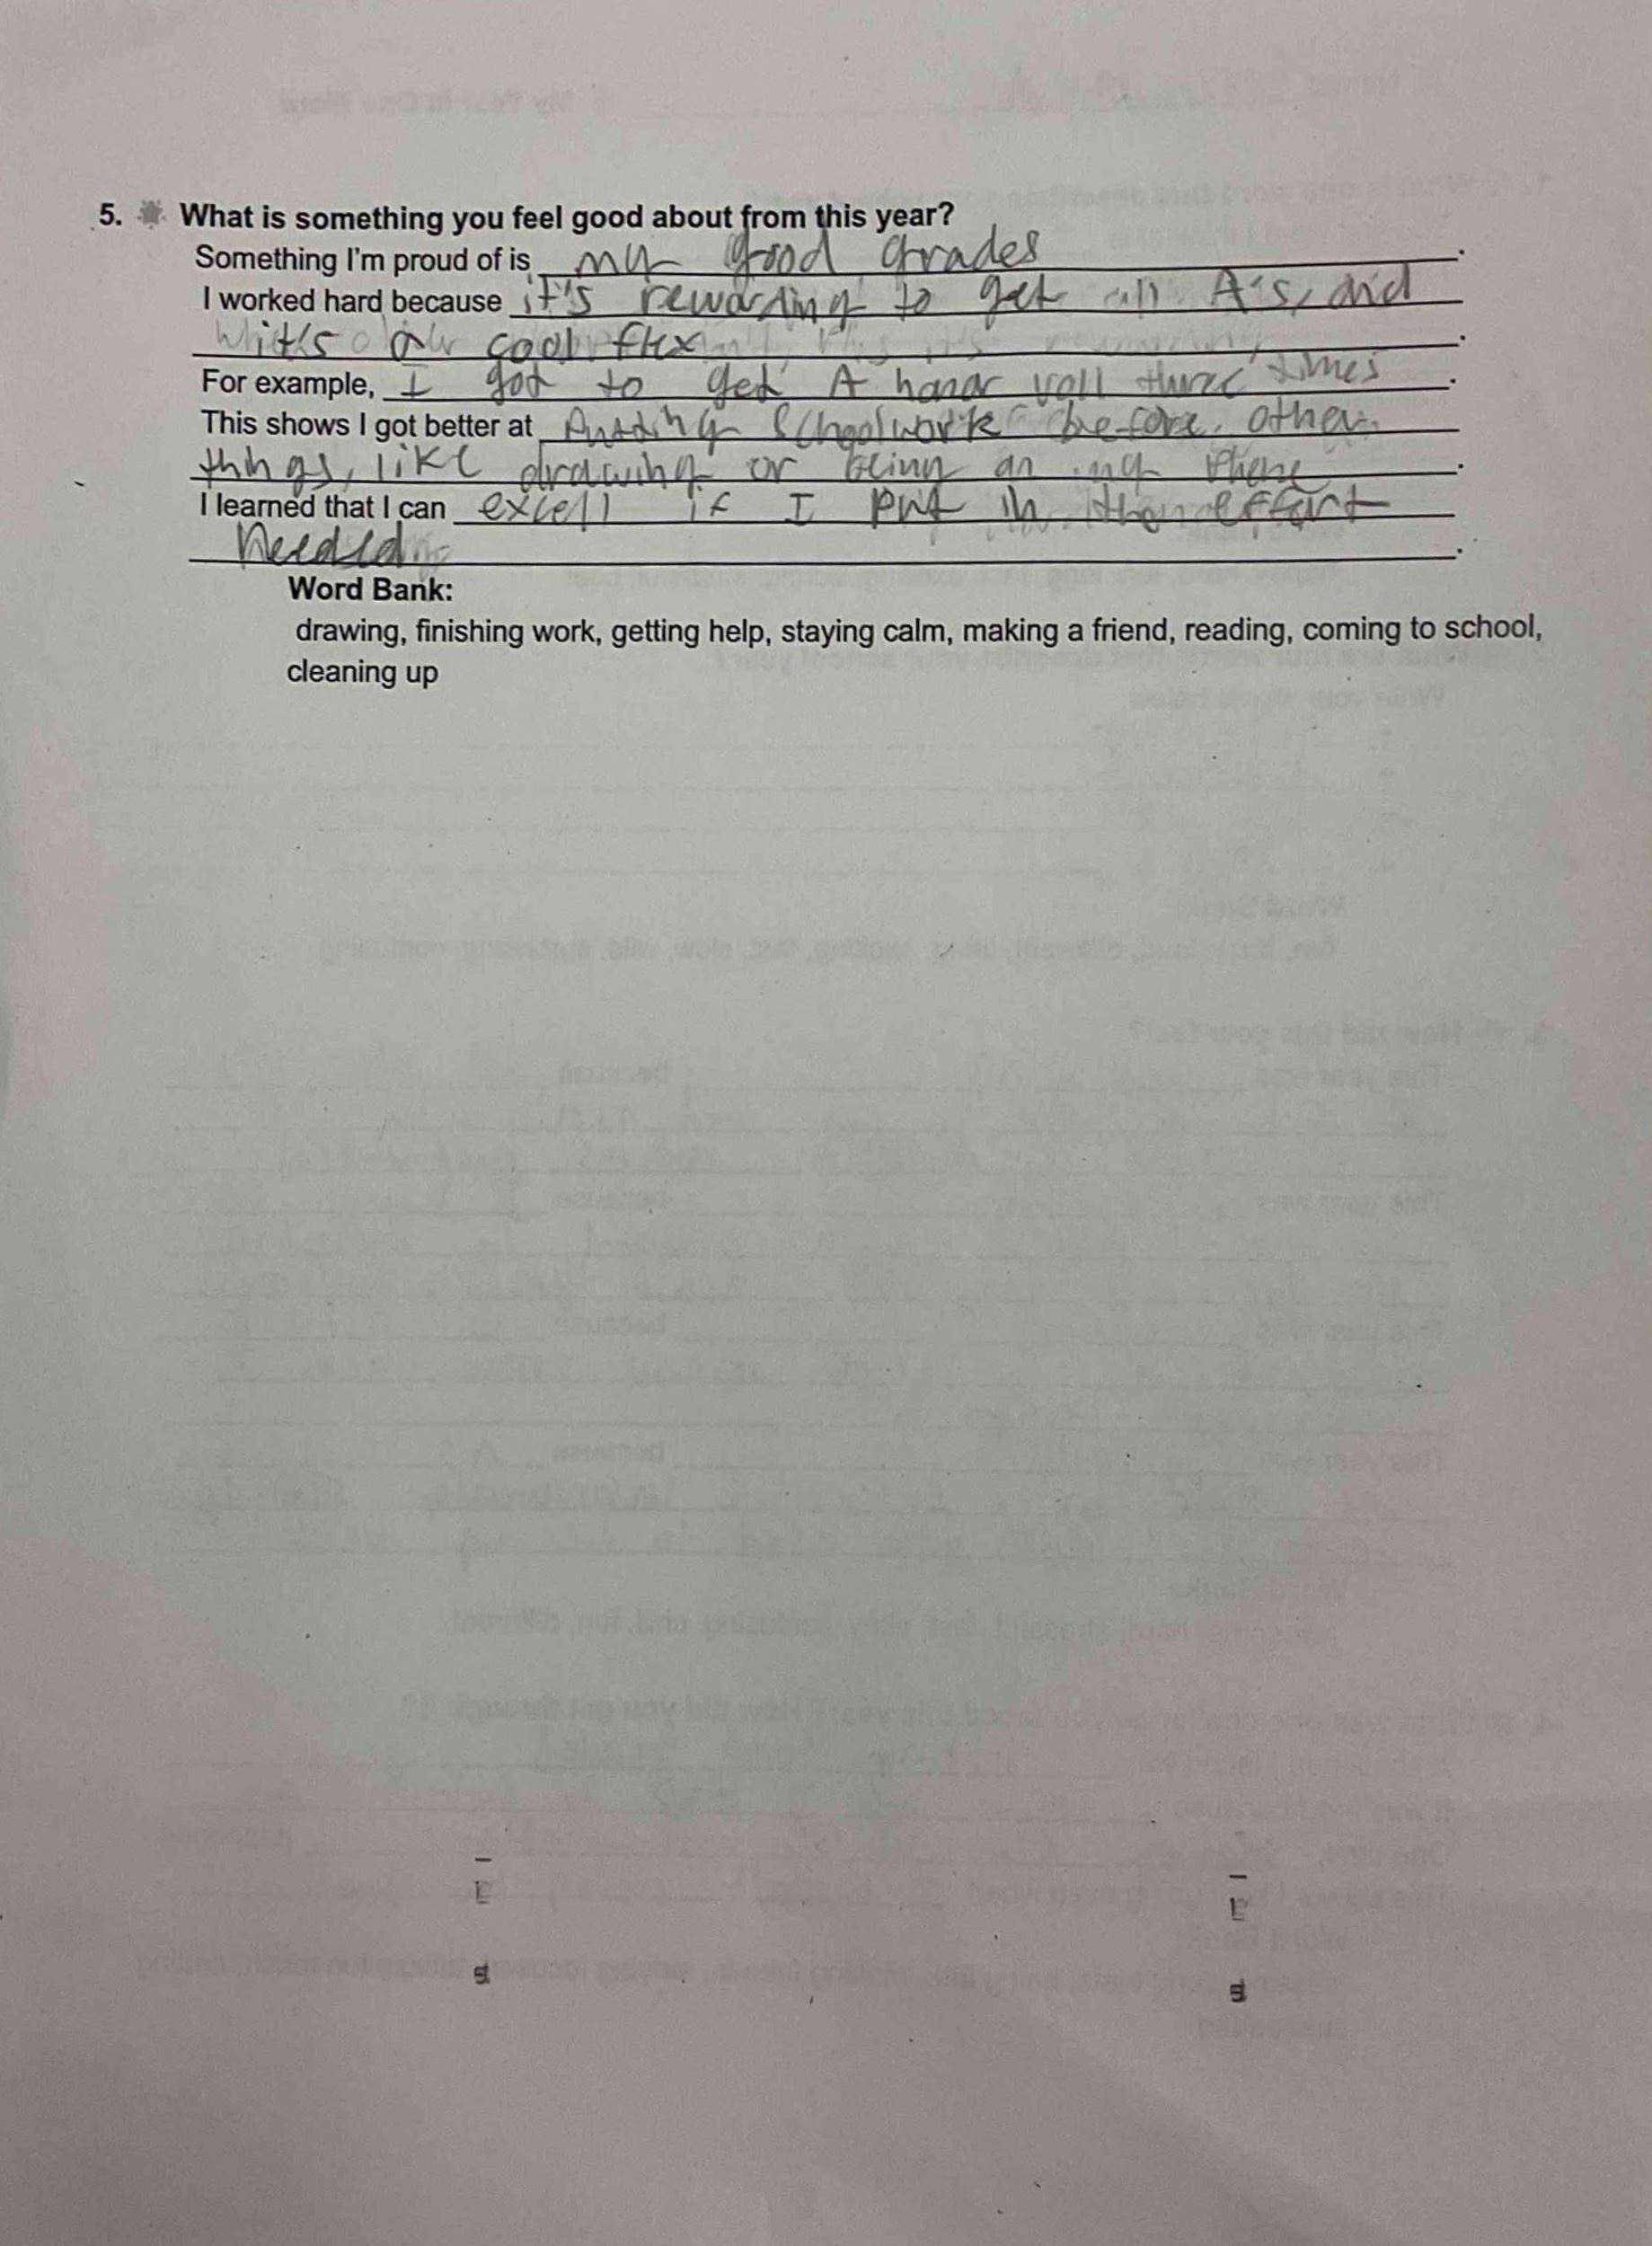 5. What is something you feel good about from this year?
Something I'm proud of is my good grades.
I worked hard because it's rewarding to get all A's, and
it's a cool flex.
For example, I got to get A honor roll three times.
This shows I got better at putting schoolwork before other
things, like drawing or being on my phone.
I learned that I can excell if I put in the effort
needed.
Word Bank:
drawing, finishing work, getting help, staying calm, making a friend, reading, coming to school,
cleaning up